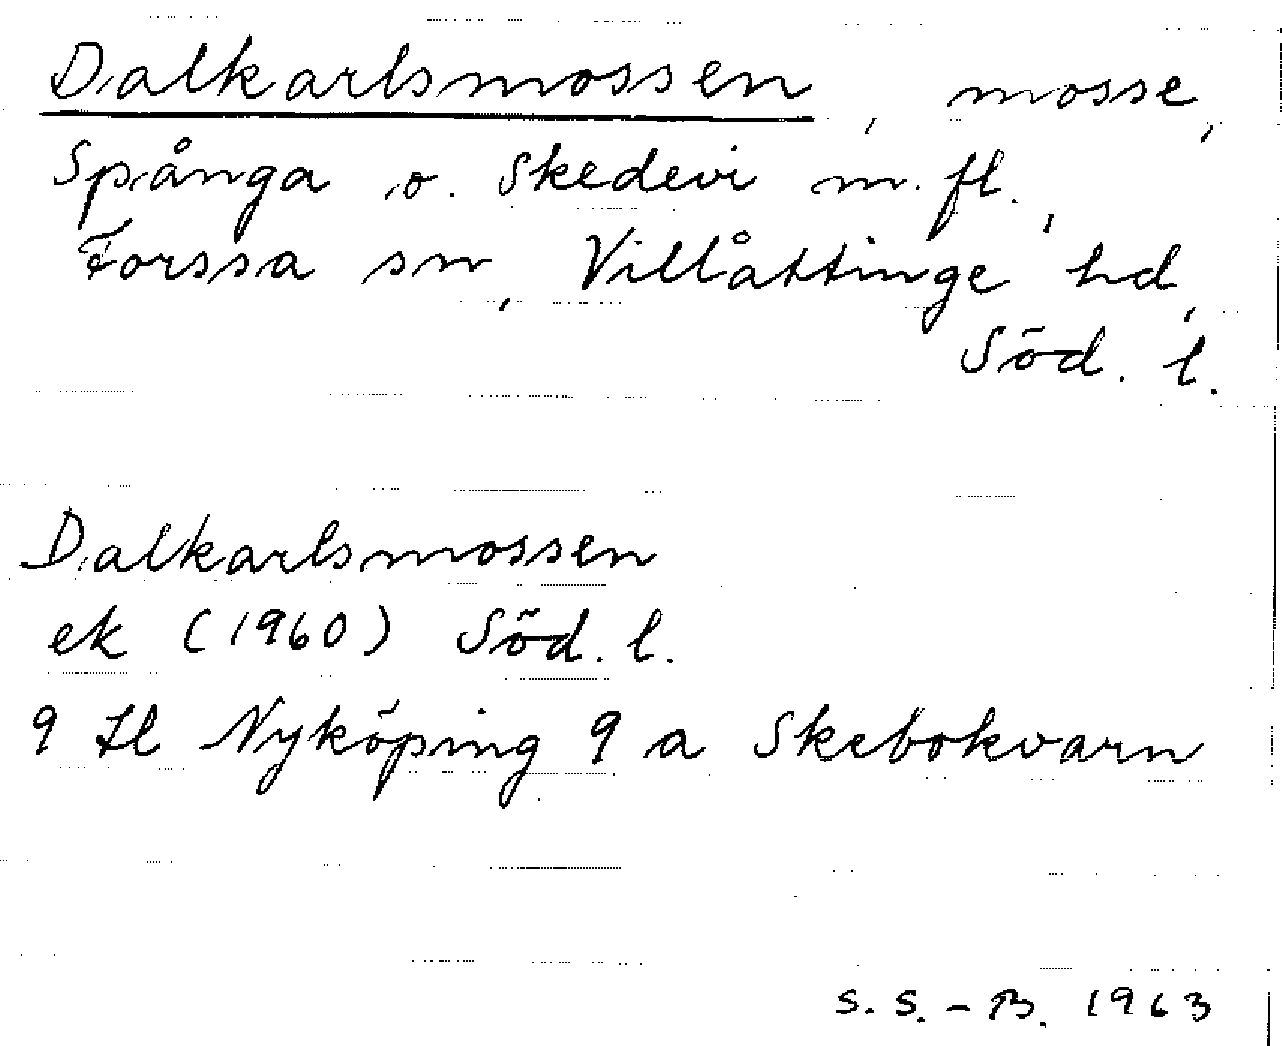 Dalkarlsmossen, mosse,
Spånga o. Skedevi m. fl.,
Forssa sn, Villåttinge hd,
Söd. l.
Dalkarlsmossen
ek (1960) Söd. l.
9 H Nyköping 9 a Skebokvarn
S. S.-B. 1963